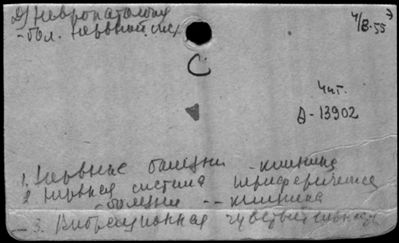 Невропатология
- бол. нервной сист
4/8-55
С
Чит.
Д-13902
1. Нервные болезни - клиника
2 Нервная система периферическая
болезни -- клиника
3. Вибрационная чувствительность